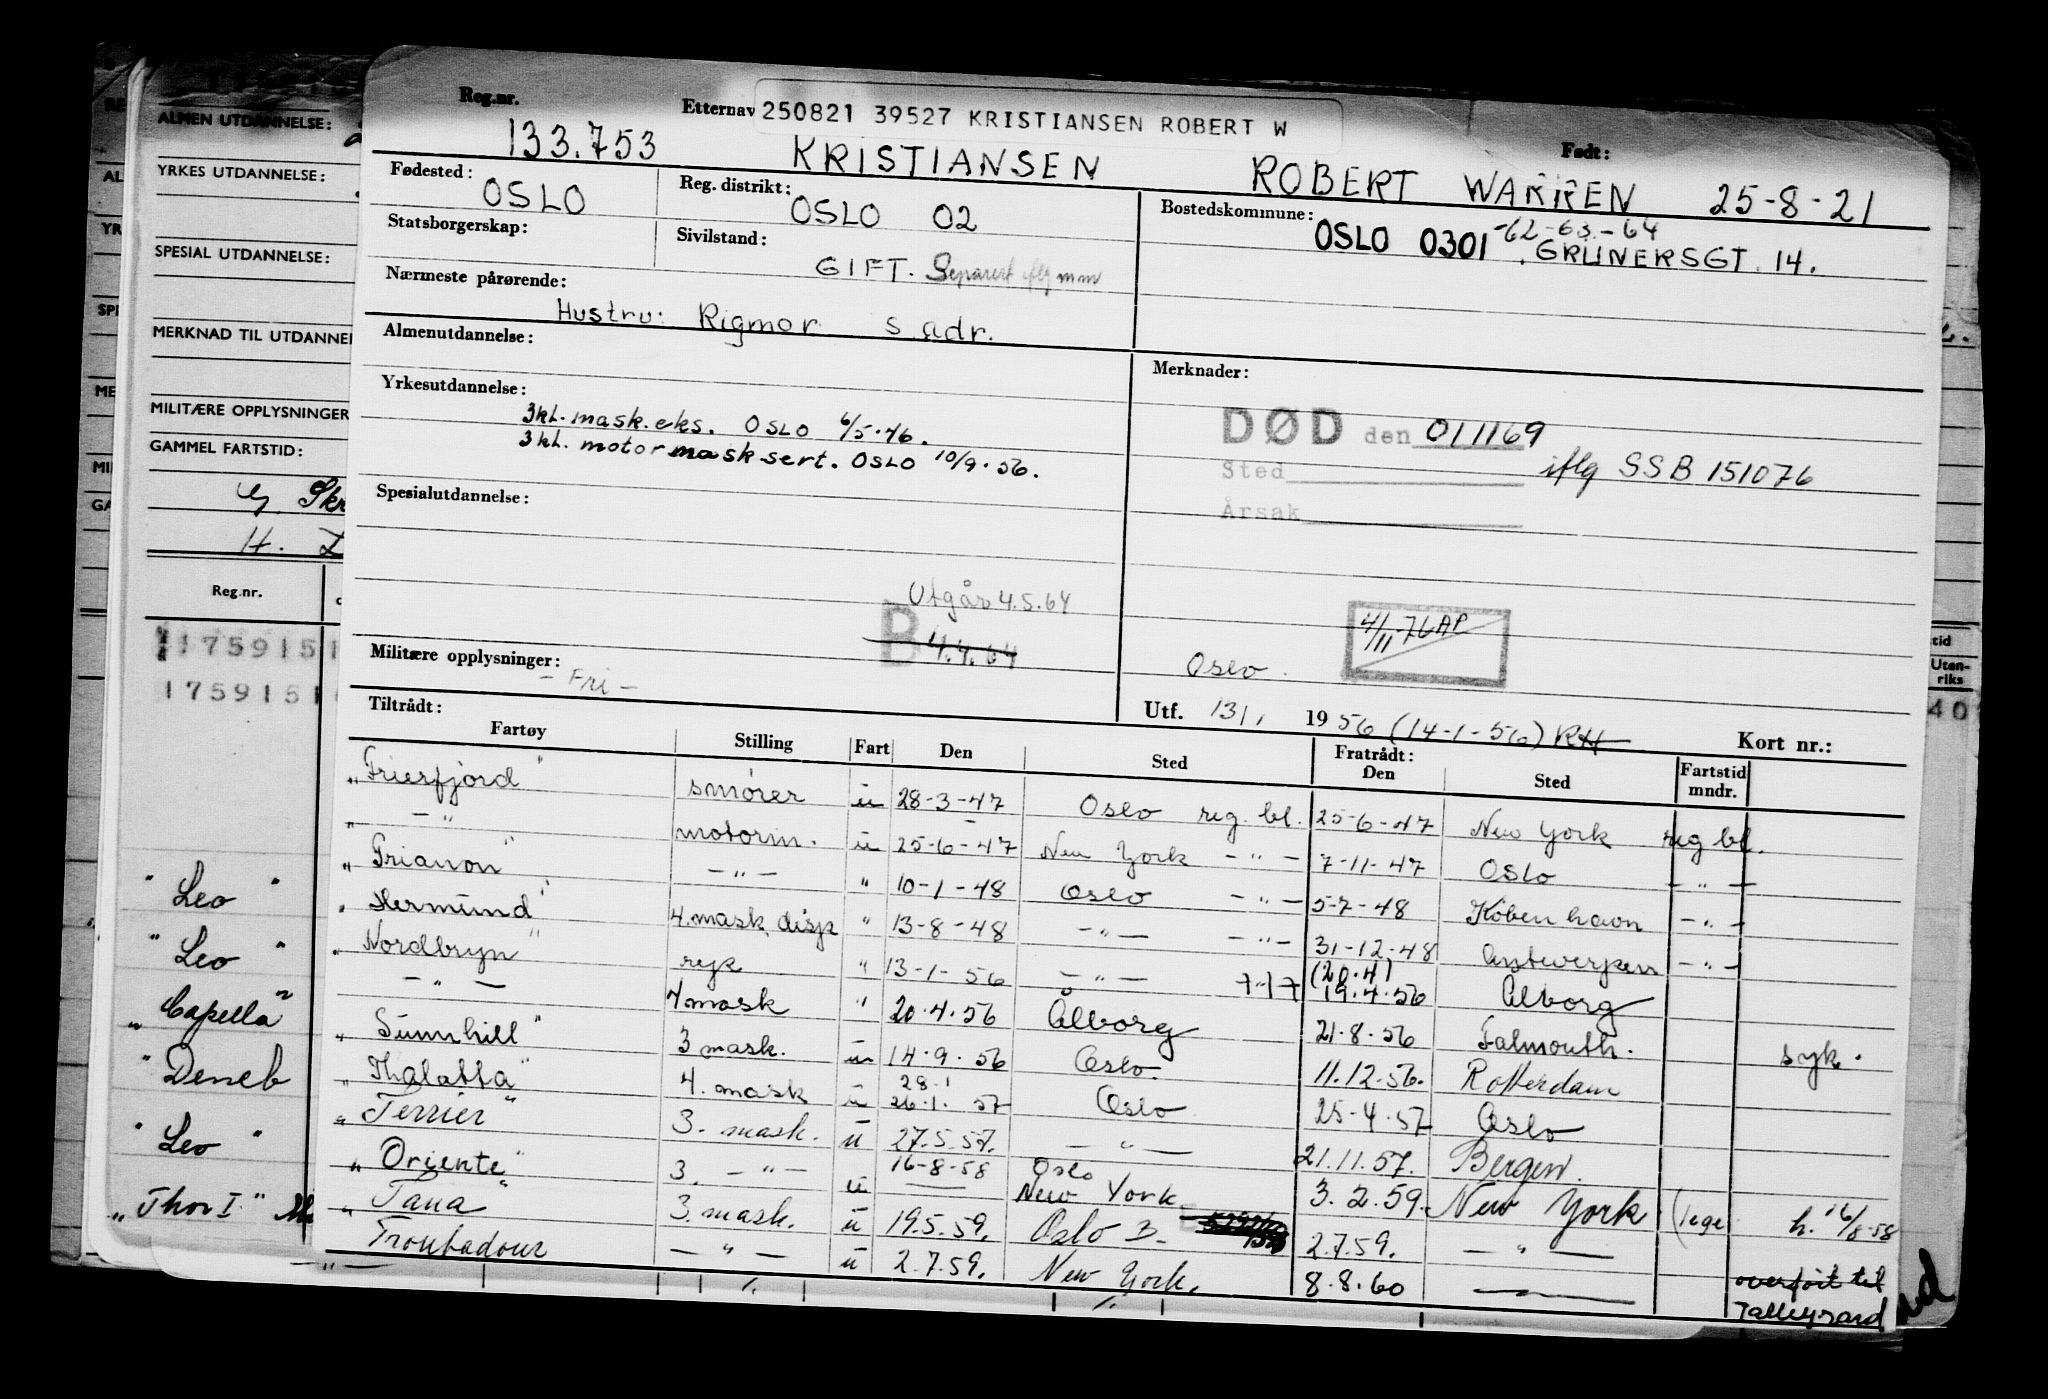 Reg.nr.
Etternav 250821 39527 KRISTIANSEN ROBERT W
Født:
133.753 KRISTIANSEN ROBERT WARREN 25-8-21
Fødested: OSLO
Reg. distrikt: OSLO 02
Bostedskommune: OSLO 0301 -62-63-64
GRÜNERSGT. 14.
Statsborgerskap:
Sivilstand: GIFT. Separert iflg mm
Nærmeste pårørende:
Hustru: Rigmor s adr.
Almenutdannelse:
Merknader:
Yrkesutdannelse:
3kl. mask.eks. OSLO 6/5-46.
3 kl. motormasksert. OSLO 10/9.56.
DØD den 011169
Sted
iflg SSB 151076
Årsak
Spesialutdannelse:
Utgår 4.5.64
B 4.4.64
4/11-76 AP
Militære opplysninger: - Fri -
Oslo.
Utf. 13/1 1956 (14-1-56) RH
Kort nr.:
Tiltrådt:
Fartøy Stilling Fart Den Sted Fratrådt: Den Sted Fartstid mndr.
"Frierfjord" smører u 28-3-47 Oslo reg. bl. 25-6-47 New York reg bl.
" - " - motorm. u 25-6-47 New York - " - 7-11-47 Oslo - " -
"Trianon" - " - " 10-1-48 Oslo - " - 5-7-48 Köbenhavn - " -
"Hermund" 4. mask. disp " 13-8-48 - " - - " - 31-12-48 Antwerpen - " -
"Nordbryn" rep " 13-1-56 - " - 7-17 (20.4) 19.4.56 Ålborg
- " - 4 mask " 20.4.56 Ålborg 21.8.56 Falmouth. syk.
"Sunnhill" 3 mask. u 14.9.56 Oslo. 11.12.56. Rotterdam
"Thalatta" 4. mask u 28.1 26.1.57 Oslo 25-4-57 Oslo
"Terrier" 3. mask. u 27.5.57. - " - 21.11.57. Bergen.
"Oriente" 3. - " - u 16-8-58 Oslo New York 3.2.59. New York (lege h. 16/8-58
"Tana" 3. mask. u 19.5.59. Oslo D. 2.7.59. - " -
Troubadour - " - u 2.7.59. New York. 8.8.60 overført til Talleyrand
ALMEN UTDANNELSE:
YRKES UTDANNELSE:
SPESIAL UTDANNELSE:
MERKNAD TIL UTDANNE
MILITÆRE OPPLYSNINGER
GAMMEL FARTSTID:
Reg.nr.
175915
175915
" Leo "
" Leo "
"Capella"
"Deneb
" Leo "
"Thor I"
tid
Uten-
riks
40